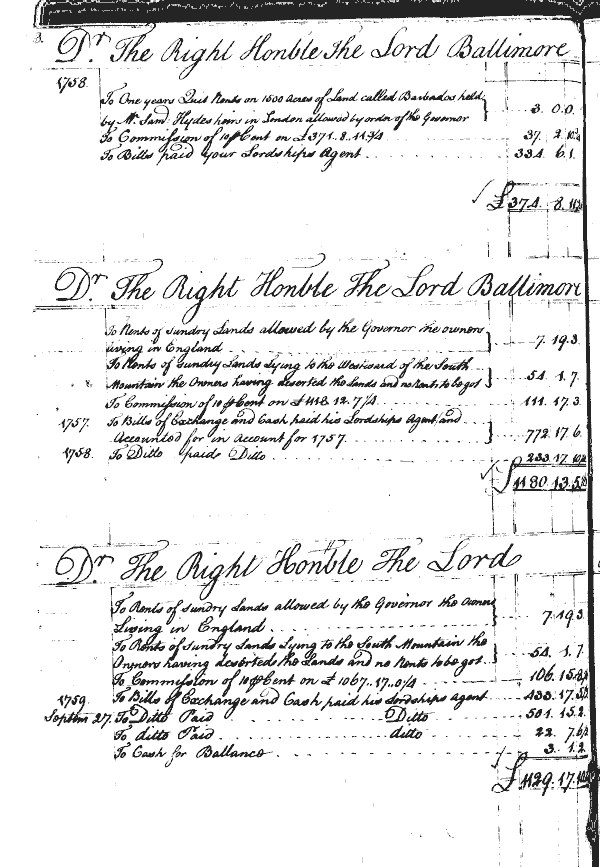 3.
Dr The Right Honble The Lord Baltimore
1758.
To One years Quit Rents on 1500 Acres of Land called Barbados held
by Mr Saml Hydes heirs in London allowed by order of the Governor 3. 0.0.
To Commission of 10 p Cent on £371.8.11¾ 37. 2.10¾
To Bills paid your Lordships Agent 334. 6.1.
£374. 8.11¾
Dr The Right Honble The Lord Baltimore
To Rents of sundry Lands allowed by the Governor the owners
living in England 7.19.3.
To Rents of sundry Lands Lying to the Westward of the South
Mountain the Owners having deserted the Lands and no Rents to be got 54. 1.7.
To Commission of 10 p Cent on £1118.12.7¼ 111.17.3.
1757. To Bills of Exchange and Cash paid his Lordships Agent and
Accounted for in Account for 1757. 772.17.6.
1758. To Ditto paid Ditto 233.17.10
£1180.13.5
Dr The Right Honble The Lord
To Rents of sundry Lands allowed by the Governor the Owners
Living in England 7.19.3
To Rents of sundry Lands Lying to the South Mountain the
Owners having deserted the Lands and no Rents to be got 54. 1.7.
To Commission of 10 p Cent on £1067..17..0¼ 106.15.8
1759. To Bills of Exchange and Cash paid his Lordships agent 433.17.5
Septbr 27. To Ditto Paid Ditto 501.15.2.
To ditto Paid ditto 22. 7.6
To Cash for Ballance 3. 1.2
£1129.17.10